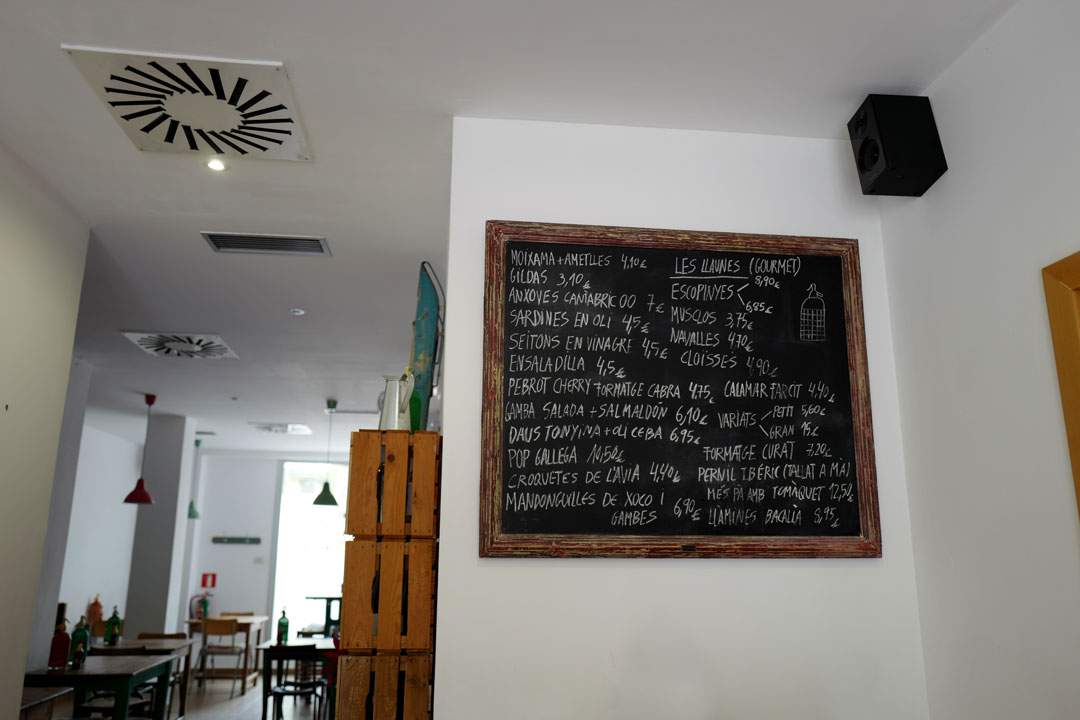 MOIXAMA + AMETLLES 4,10€
GILDAS 3,10€
ANXOVES CANTABRIC OO 7€
SARDINES EN OLI 4,5€
SEITONS EN VINAGRE 4,5€
ENSALADILLA 4,5€
PEBROT CHERRY FORMATGE CABRA 4,75€
GAMBA SALADA + SALMALDON 6,10€
DAUS TONYINA + OLI CEBA 6,95€
POP GALLEGA 10,50€
CROQUETES DE L'AVIA 4,40€
MANDONGUILLES DE XOCO I
GAMBES 6,90€
LES LLAUNES (GOURMET)
ESCOPINYES 8,90€
6,85€
MUSCLOS 3,75€
NAVALLES 4,70€
CLOISSES 4,90€
CALAMAR FARCIT 4,40€
VARIATS PETIT 5,60€
GRAN 15€
FORMATGE CURAT 7,20€
PERNIL IBÉRIC (TALLAT A MA)
MÉS PA AMB TOMÀQUET 12,50€
LLÀMINES BACALLÀ 8,95€